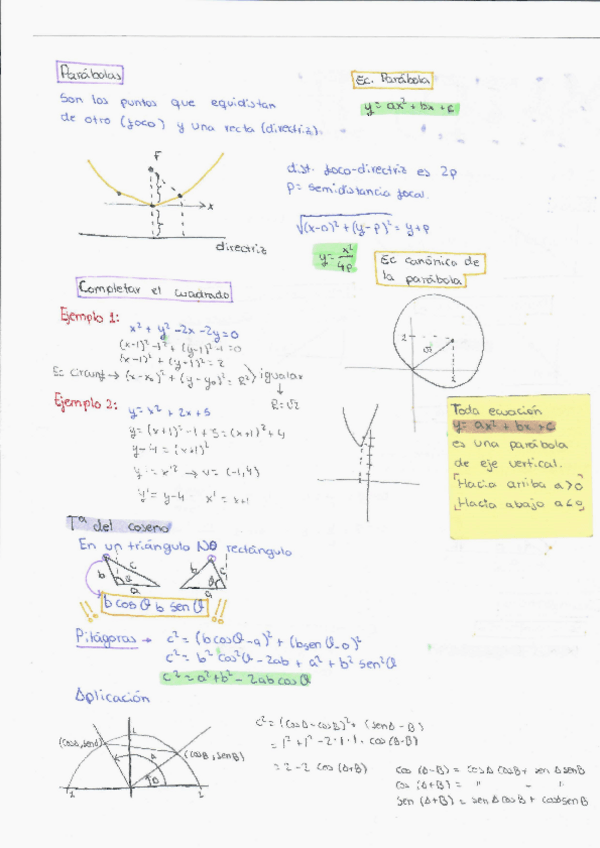 Parábolas
Son los puntos que equidistan
de otro (foco) y una recta (directriz).
Ec. Parábola
y = ax² + bx + c
F
x
directriz
dist. foco-directriz es 2p
p = semidistancia focal.
√(x-0)² + (y-p)² = y+p
y = x²/4p
Ec canónica de
la parábola
Completar el cuadrado
Ejemplo 1:
x² + y² - 2x - 2y = 0
(x-1)² - 1² + (y-1)² - 1 = 0
(x-1)² + (y-1)² = 2
Ec Circunf → (x-x₀)² + (y-y₀)² = R² igualar
R = √2
Ejemplo 2:
y = x² + 2x + 5
y = (x+1)² - 1 + 5 = (x+1)² + 4
y - 4 = (x+1)²
y' = x'² → v = (-1,4)
y' = y-4 x' = x+1
Toda ecuación
y = ax² + bx + c
es una parábola
de eje vertical.
Hacia arriba a>0
Hacia abajo a<0
Tª del coseno
En un triángulo NO rectángulo
b c θ a
b θ c a
!! b cos θ b sen θ !!
Pitágoras → c² = (b cos θ - a)² + (b sen θ - 0)²
c² = b² cos² θ - 2ab + a² + b² sen² θ
c² = a² + b² - 2ab cos θ
Aplicación
(cos A, sen A)
(cos B, sen B)
c² = (cos A - cos B)² + (sen A - B)
= 1² + 1² - 2·1·1 · cos (A-B)
= 2 - 2 cos (A+B)
cos (A-B) = cos A cos B + sen A sen B
cos (A+B) = " - "
sen (A+B) = sen A cos B + cos A sen B